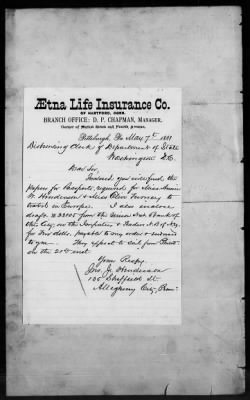 Ætna Life Insurance Co.
OF HARTFORD, CONN.
BRANCH OFFICE: D. P. CHAPMAN, MANAGER,
Corner of Market Street and Fourth Avenue,
Pittsburgh, Pa May 7th 1881
Disbursing Clerk of Department of State
Washington D.C.
Dear Sir,
Inclosed you will find the
papers for Passports, required for Miss Annie
W. Henderson & Miss to
travel in Europe. I also inclose
draft from the Bank of
this City, on the Importers & Traders N. B. of N.Y.
for Five dollars, payable to my order & indorsed
to you. They expect to sail from
on the 21st inst
Yours Respy.
Jno. J. Henderson
Sheffield St.
Allegheny City, Penn